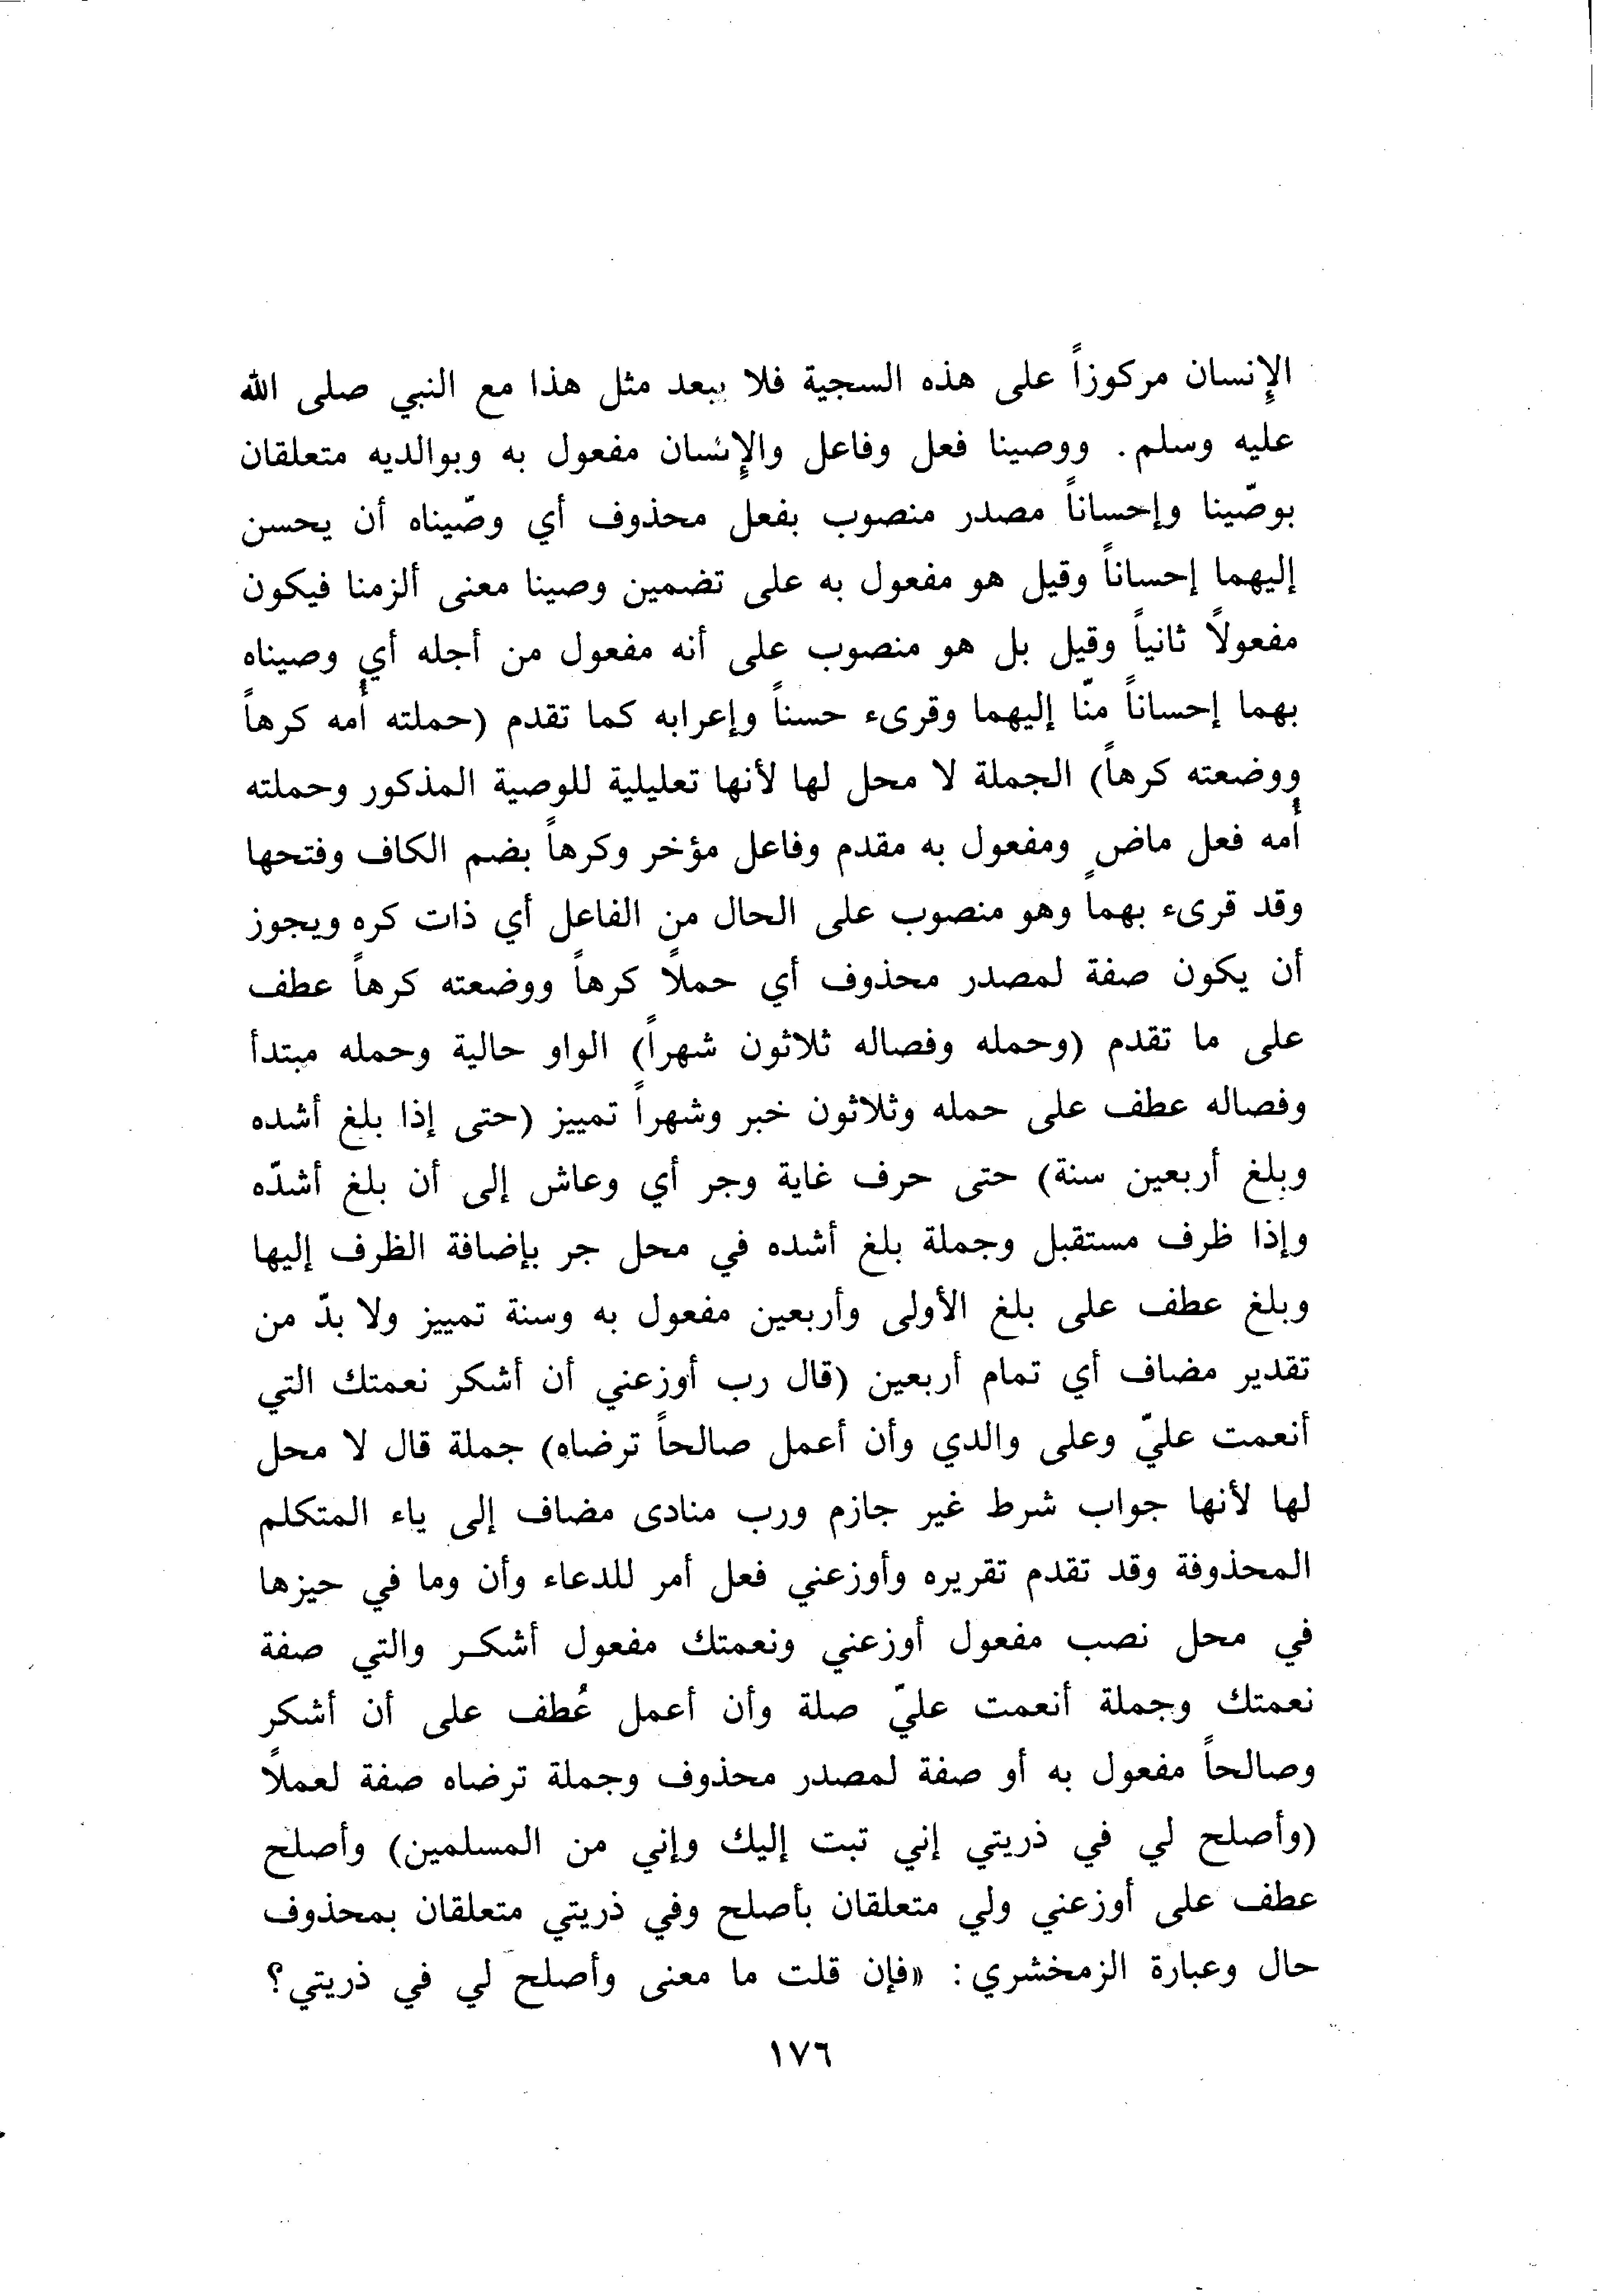 الإنسان مركوزاً على هذه السجية فلا يبعد مثل هذا مع النبي صلى الله
عليه وسلم. ووصينا فعل وفاعل والإنسان مفعول به وبوالديه متعلقان
بوصّينا وإحساناً مصدر منصوب بفعل محذوف أي وصّيناه أن يحسن
إليهما إحساناً وقيل هو مفعول به على تضمين وصينا معنى ألزمنا فيكون
مفعولاً ثانياً وقيل بل هو منصوب على أنه مفعول من أجله أي وصيناه
بهما إحساناً منّا إليهما وقرىء حسناً وإعرابه كما تقدم (حملته أُمه كرهاً
ووضعته كرهاً) الجملة لا محل لها لأنها تعليلية للوصية المذكور وحملته
أُمه فعل ماضٍ ومفعول به مقدم وفاعل مؤخر وكرهاً بضم الكاف وفتحها
وقد قرىء بهما وهو منصوب على الحال من الفاعل أي ذات كره ويجوز
أن يكون صفة لمصدر محذوف أي حملاً كرهاً ووضعته كرهاً عطف
على ما تقدم (وحمله وفصاله ثلاثون شهراً) الواو حالية وحمله مبتدأ
وفصاله عطف على حمله وثلاثون خبر وشهراً تمييز (حتى إذا بلغ أشده
وبلغ أربعين سنة) حتى حرف غاية وجر أي وعاش إلى أن بلغ أشدّه
وإذا ظرف مستقبل وجملة بلغ أشده في محل جر بإضافة الظرف إليها
وبلغ عطف على بلغ الأولى وأربعين مفعول به وسنة تمييز ولا بدّ من
تقدير مضاف أي تمام أربعين (قال رب أوزعني أن أشكر نعمتك التي
أنعمت عليّ وعلى والدي وأن أعمل صالحاً ترضاه) جملة قال لا محل
لها لأنها جواب شرط غير جازم ورب منادى مضاف إلى ياء المتكلم
المحذوفة وقد تقدم تقريره وأوزعني فعل أمر للدعاء وأن وما في حيزها
في محل نصب مفعول أوزعني ونعمتك مفعول أشكر والتي صفة
نعمتك وجملة أنعمت عليّ صلة وأن أعمل عُطف على أن أشكر
وصالحاً مفعول به أو صفة لمصدر محذوف وجملة ترضاه صفة لعملاً
(وأصلح لي في ذريتي إني تبت إليك وإني من المسلمين) وأصلح
عطف على أوزعني ولي متعلقان بأصلح وفي ذريتي متعلقان بمحذوف
حال وعبارة الزمخشري: «فإن قلت ما معنى وأصلح لي في ذريتي؟
١٧٦